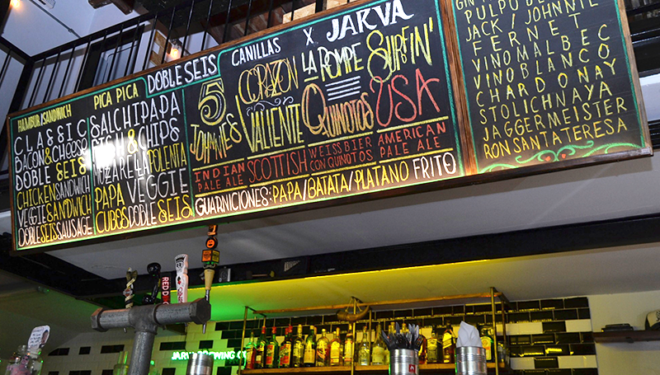 HAMBUR SANDWICH
CLASSIC
BACON & CHEESE
DOBLE SEIS
CHICKEN SANDWICH
VEGGIE SANDWICH
DOBLE SEIS SAUSAGE
PICA PICA
SALCHIPAPA
FISH & CHIPS
POLENTA
PAPA VEGGIE
CUBOS DOBLE SEIS
DOBLE SEIS
CANILLAS X JARVA
5 JOHNNIES
INDIAN
PALE ALE
CORAZON
VALIENTE
SCOTTISH
LA ROMPE
QUINOTOS
WEISS BIER
CON QUINOTOS
SURFIN'
USA
AMERICAN
PALE ALE
GUARNICIONES: PAPA/BATATA/PLATANO FRITO
PULPO DE
JACK/JOHNNIE
FERNET
VINO MALBEC
VINO BLANCO
CHARDONAY
STOLICHNAYA
JAGGERMEISTER
RON SANTA TERESA